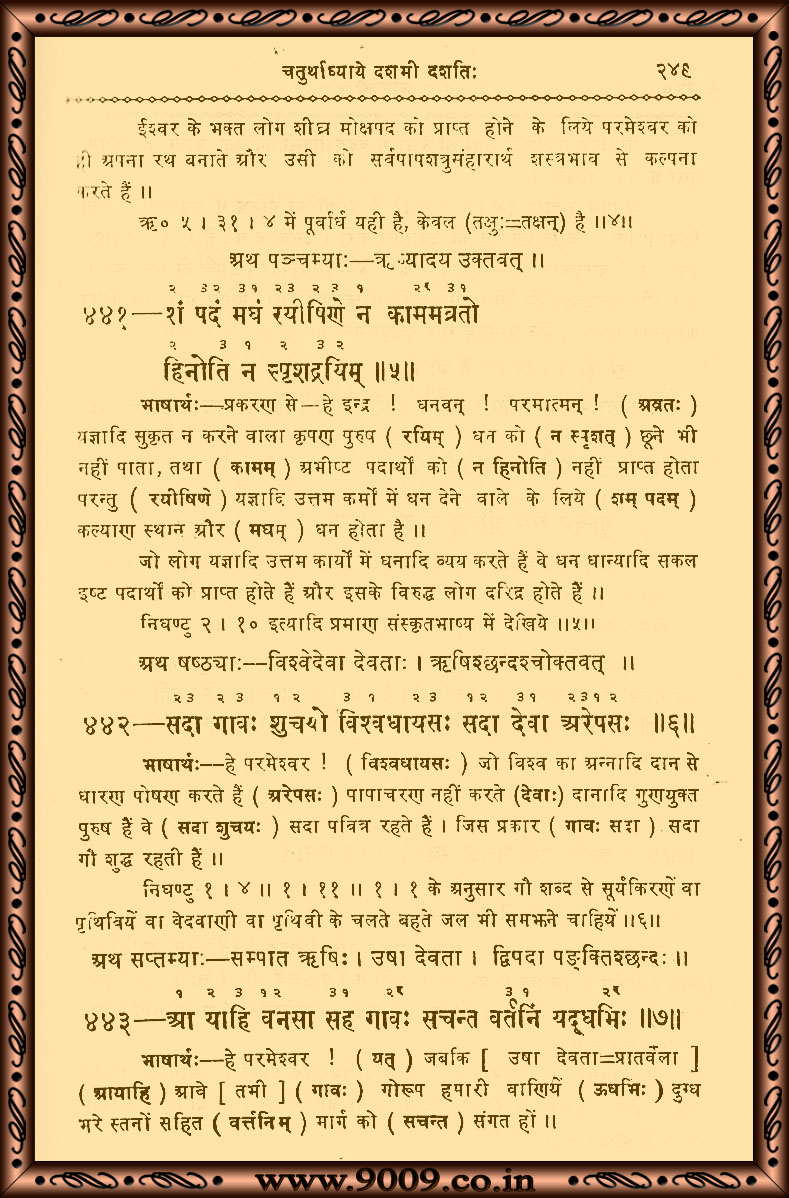 चतुर्थाध्याये दशमी दशतिः २४९
ईश्वर के भक्त लोग शीघ्र मोक्षपद को प्राप्त होने के लिये परमेश्वर को
ही अपना रथ बनाते और उसी को सर्वपापशत्रुसंहारार्थ शस्त्रभाव से कल्पना
करते हैं ॥
ऋ० ५ । ३१ । ४ में पूर्वार्ध यही है, केवल (तक्षुः=तक्षन्) है ॥४॥
अथ पञ्चम्याः—ऋष्यादय उक्तवत् ॥
२ ३२ ३१ २३ २ ३ १ २१ ३१
४४१—शं पदं मघं रयीषिणे न काममव्रतो
२ ३ १ २ ३ २
हिनोति न स्पृशद्रयिम् ॥५॥
भाषार्थः—प्रकरण से—हे इन्द्र ! धनवन् ! परमात्मन् ! ( अव्रतः )
यज्ञादि सुकृत न करने वाला कृपण पुरुष ( रयिम् ) धन को ( न स्पृशत् ) छूने भी
नहीं पाता, तथा ( कामम् ) अभीष्ट पदार्थों को ( न हिनोति ) नहीं प्राप्त होता
परन्तु ( रयीषिणे ) यज्ञादि उत्तम कर्मों में धन देने वाले के लिये ( शम् पदम् )
कल्याण स्थान और ( मघम् ) धन होता है ॥
जो लोग यज्ञादि उत्तम कार्यों में धनादि व्यय करते हैं वे धन धान्यादि सकल
इष्ट पदार्थों को प्राप्त होते हैं और इसके विरुद्ध लोग दरिद्र होते हैं ॥
निघण्टु २ । १० इत्यादि प्रमाण संस्कृतभाष्य में देखिये ॥५॥
अथ षष्ठ्याः—विश्वेदेवा देवताः । ऋषिश्छन्दश्चोक्तवत् ॥
२३ २३ १ २ ३ १ २३ १२ ३१ २३१२
४४२—सदा गावः शुचयो विश्वधायसः सदा देवा अरेपसः ॥६॥
भाषार्थः—हे परमेश्वर ! ( विश्वधायसः ) जो विश्व का अन्नादि दान से
धारण पोषण करते हैं ( अरेपसः ) पापाचरण नहीं करते (देवाः) दानादि गुणयुक्त
पुरुष हैं वे ( सदा शुचयः ) सदा पवित्र रहते हैं । जिस प्रकार ( गावः सदा ) सदा
गौ शुद्ध रहती हैं ॥
निघण्टु १ । ४ ॥ १ । ११ ॥ १ । १ के अनुसार गौ शब्द से सूर्यकिरणें वा
पृथिवियें वा वेदवाणी वा पृथिवी के चलते बहते जल भी समझने चाहियें ॥६॥
अथ सप्तम्याः—सम्पात ऋषिः । उषा देवता । द्विपदा पङ्क्तिश्छन्दः ॥
१ २ ३ १२ ३१ २१ ३१ २१
४४३—आ याहि वनसा सह गावः सचन्त वर्तनिं यदूधभिः ॥७॥
भाषार्थः—हे परमेश्वर ! ( यत् ) जबकि [ उषा देवता=प्रातर्वेला ]
( आयाहि ) आवे [ तभी ] ( गावः ) गोरूप हमारी वाणियें ( ऊधभिः ) दुग्ध
भरे स्तनों सहित ( वर्त्तनिम् ) मार्ग को ( सचन्त ) संगत हों ॥
www.9009.co.in